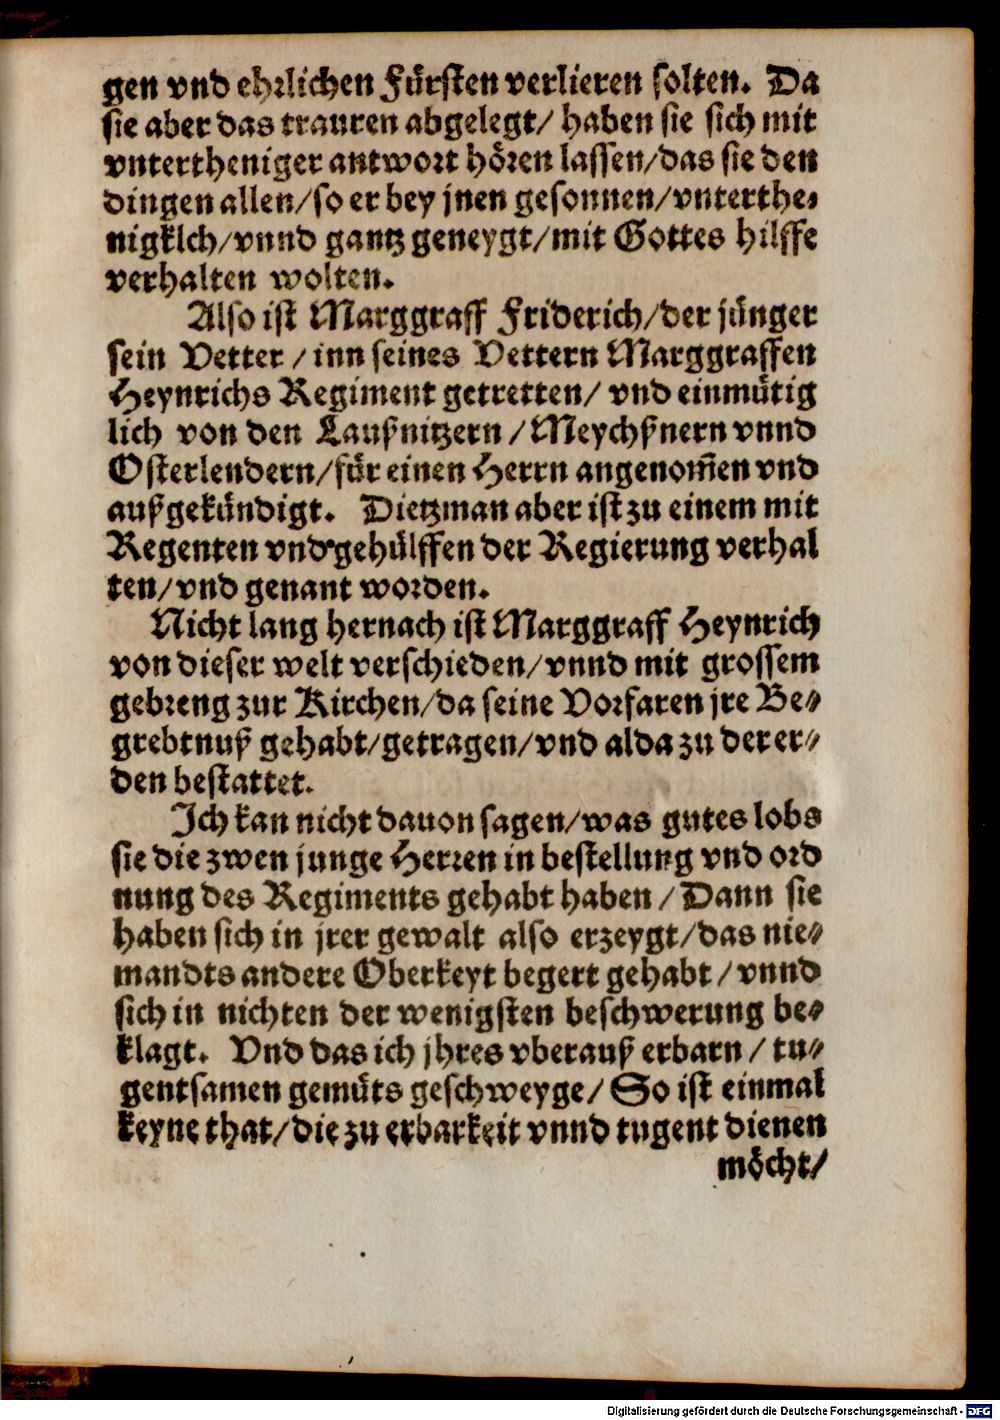 gen vnd ehrlichen Fürsten verlieren solten. Da
sie aber das trauren abgelegt/ haben sie sich mit
vntertheniger antwort hören lassen/das sie den
dingen allen/so er bey jnen gesonnen/vnterthe-
nigklch/vnnd gantz geneygt/mit Gottes hilffe
verhalten wolten.
Also ist Marggraff Friderich/der jünger
sein Vetter / inn seines Vettern Marggraffen
Heynrichs Regiment getretten/ vnd einmütig
lich von den Laußnitzern / Meychßnern vnnd
Osterlendern/für einen Herrn angenom̄en vnd
außgekündigt. Dietzman aber ist zu einem mit
Regenten vnd gehülffen der Regierung verhal
ten/vnd genant worden.
Nicht lang hernach ist Marggraff Heynrich
von dieser welt verschieden/vnnd mit grossem
gebreng zur Kirchen/da seine Vorfaren jre Be-
grebtnuß gehabt/getragen/vnd alda zu der er-
den bestattet.
Ich kan nicht dauon sagen/was gutes lobs
sie die zwen junge Herren in bestellung vnd ord
nung des Regiments gehabt haben / Dann sie
haben sich in jrer gewalt also erzeygt/das nie-
mandts andere Oberkeyt begert gehabt / vnnd
sich in nichten der wenigsten beschwerung be-
klagt. Vnd das ich jhres vberauß erbarn / tu-
gentsamen gemüts geschweyge/ So ist einmal
keyne that/die zu erbarkeit vnnd tugent dienen
möcht/
Digitalisierung gefördert durch die Deutsche Forschungsgemeinschaft - DFG